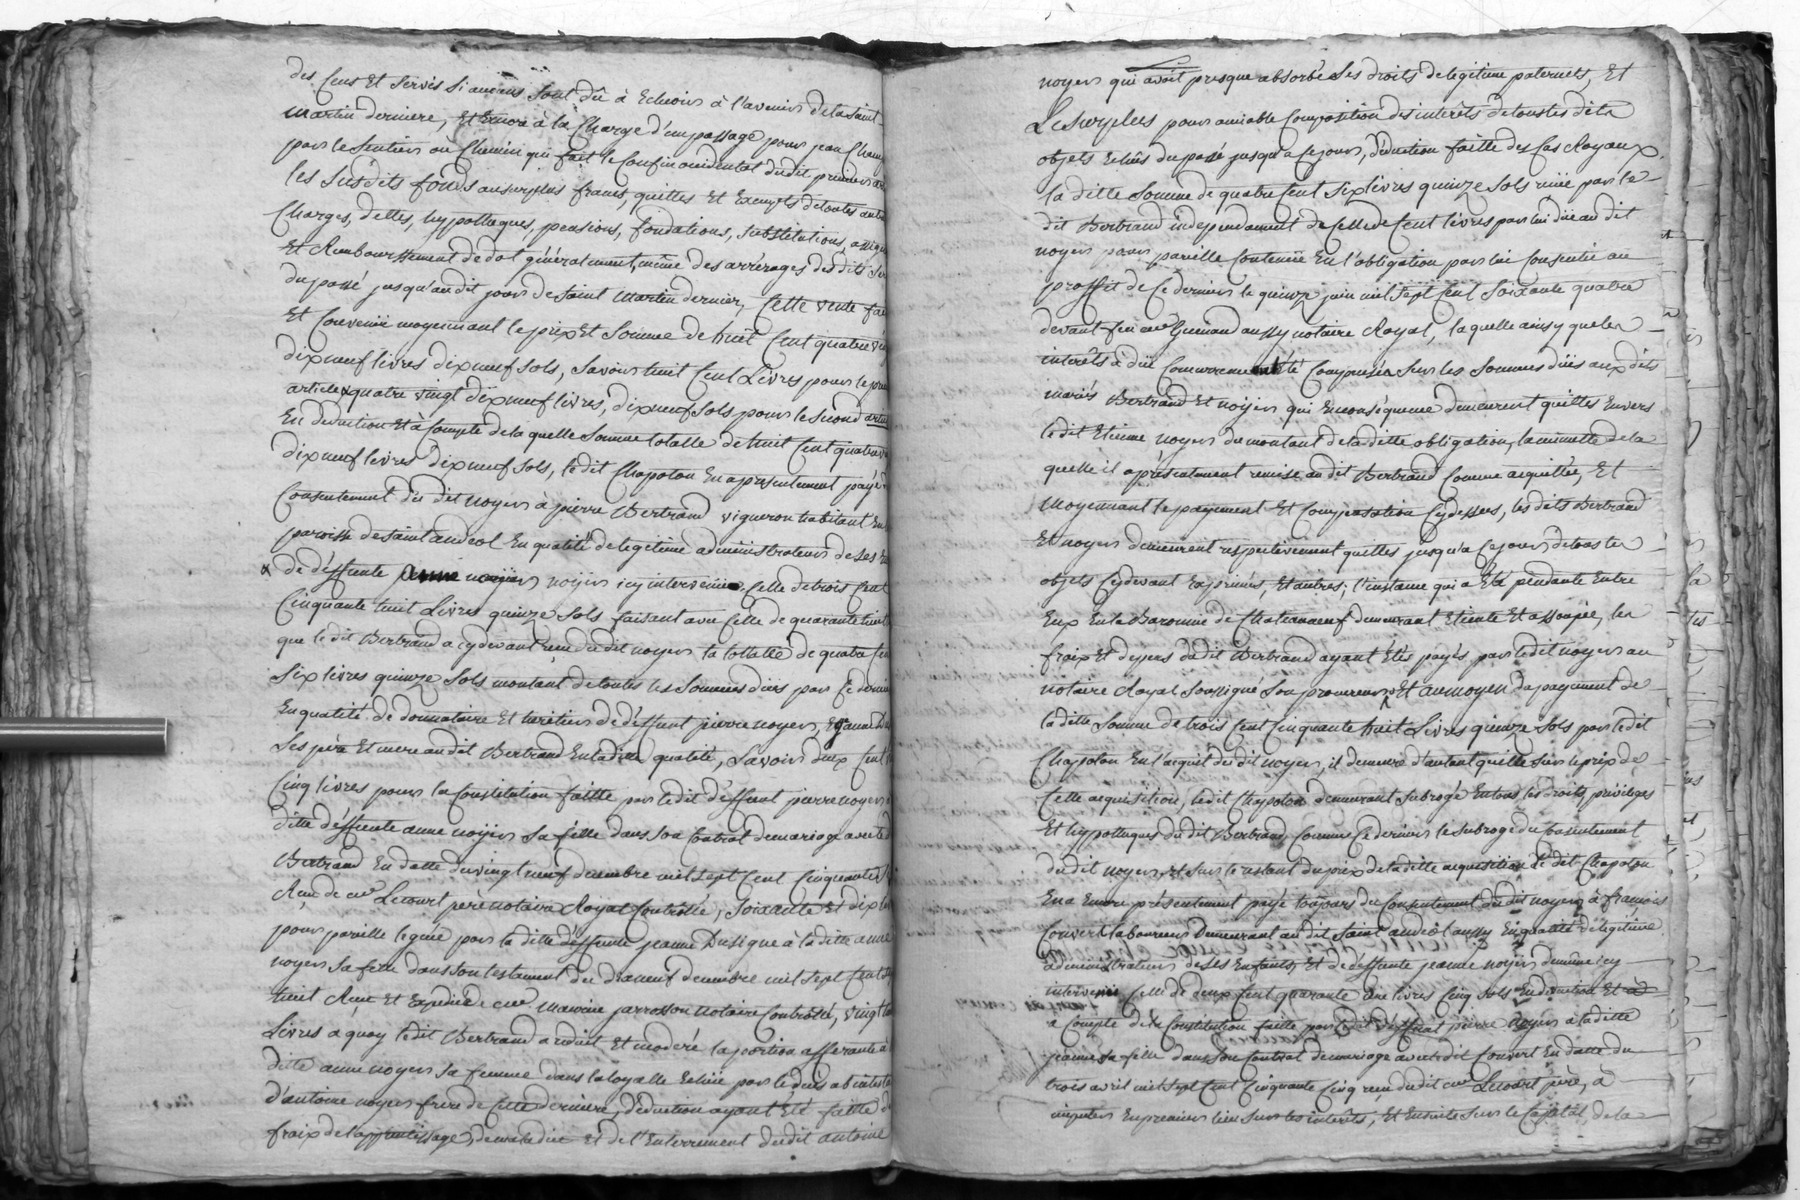 des Cens Et servis si aucuns sont dû à Echeoir à l'avenir de la saint
martin derniere, Et Encore à la Charge d'un passage pour jean Cham
par le sentier ou Chemin qui fait le Confin occidental dudit premier ar
les susdits fonds au surplus francs, quittes Et Exempts de toutes autres
Charges, dettes, hypotheques, pensions, fondations, substitutions,
Et Rembourssement de dot généralement, même des arrérages desdits ser
du passé jusqu'audit jour de saint martin dernier, Cette vente fai
Et Convenüe moyennant le prix Et Somme de huit Cent quatre vi
dix neuf livres dix neuf sols, savoir huit Cent Livres pour le pre
article & quatre vingt dix neuf livres, dix neuf sols pour le second article
En deduction Et à Compte de la quelle Somme totalle de huit Cent quatre v
dix neuf livres dix neuf sols, ledit Chapolon En a présentement payé
Consentement du dit noyer à pierre Bertrand vigneron habitant En
paroisse de saint andéol En qualité de legitime administrateur de ses En
x de déffunte noyer icy intervenüe, Celle de trois Cent
Cinquante huit Livres quinze sols faisant avec Celle de quarante huit
que le dit Bertrand a cydevant reçu dudit noyer la tottalité de quatre Cent
six livres quinze sols montant de toutes les sommes dües par Ce dernier
En qualité de donnataire Et heritier de déffunt pierre noyer, Et
ses pere Et mere audit Bertrand En ladite qualité, savoir deux Cent
Cinq livres pour la Constitution faitte par ledit déffunt pierre noyer
ditte déffunte anne noyer sa fille dans son Contrat de mariage avec le d
Bertrand En datte du vingt neuf decembre mil sept Cent Cinquante
Reçu de me Lecourt père notaire Royal Controllé, soixante Et dix
pour pareille leguée par la ditte déffunte jeanne Dusigne à la ditte anne
noyer sa fille dans son testament du dix neuf decembre mil sept Cent
huit Reçu Et Expédié de me notaire Controllé, vingt
Livres a quoy ledit Bertrand a réduit Et modéré la portion afferante à
ditte anne noyer sa femme dans la loyalle Echüe par le deces abintestat
d'antoine noyer frere de Cette derniere, déduction ayant Eté faitte d
fraix de l'apprentissage, de maladie Et de l'Enterrement dudit antoine
noyer qui avoit presque absorbé ses droits de légitime paternels, Et
Le surplus pour amiable Composition des interêts de toustes dela
objets Echûs du passé jusqu'a Ce jour, déduction faitte des Cas Royaux
la ditte somme de quatre Cent six livres quinze sols par le
dit Bertrand independamment de Celle de Cent livres par lui düe audit
noyer pour pareille Contenüe En l'obligation par lui Consentie au
proffit de Ce dernier le quinze juin mil sept Cent soixante quatre
devant feu me aussy notaire Royal, laquelle ainsy que les
interêts à düe Concurrence été Compensée sur les sommes dües auxdits
mariés Bertrand Et noyer qui En conséquence demeurent quittes Envers
ledit Etienne noyer du montant de la ditte obligation, la minutte de la
quelle il a présentement remise audit Bertrand Comme acquittée, Et
Moyennant le payement Et Compensation Cydessus, lesdits Bertrand
Et noyer demeurent respectivement quittes jusqu'a Ce jour de tous les
objets Cydevant Exprimés, Et autres; l'instance qui a Eté pendante Entre
Eux En la Baronnie de Chateauneuf demeurant Eteinte Et assoupie, les
fraix Et depens dudit Bertrand ayant Etés payés par ledit noyer au
notaire Royal soussigné son procureur, Et au moyen du payement de
la ditte somme de trois Cent Cinquante huit Livres quinze sols par ledit
Chapolon En l'acquit dudit noyer, il demeure d'autant quitte sur le prix de
Cette acquisition, ledit Chapolon demeurant subrogé En tous les droits, privileges
Et hypotheques du dit Bertrand, Comme Ce dernier le subroge du Consentement
dudit noyer, Et sur le restant du prix de la ditte acquisition le dit Chapolon
En a Encore présentement payé toujours du Consentement dudit noyer à françois
Convert laboureur demeurant audit saint andéol aussy En qualité de légitime
administrateur de ses Enfants, Et de déffunte jeanne noyer de même icy
intervenüe Celle de deux Cent quarante une livres Cinq sols En deduction Et à
a Compte de la Constitution faitte par ledit déffunt pierre noyer à la ditte
jeanne sa fille dans son Contrat de mariage avec ledit Convert En datte du
trois avril mil sept Cent Cinquante Cinq reçu dudit me Lecourt père, à
imputer En premier lieu sur les interêts, Et Ensuite sur le Capital, de la